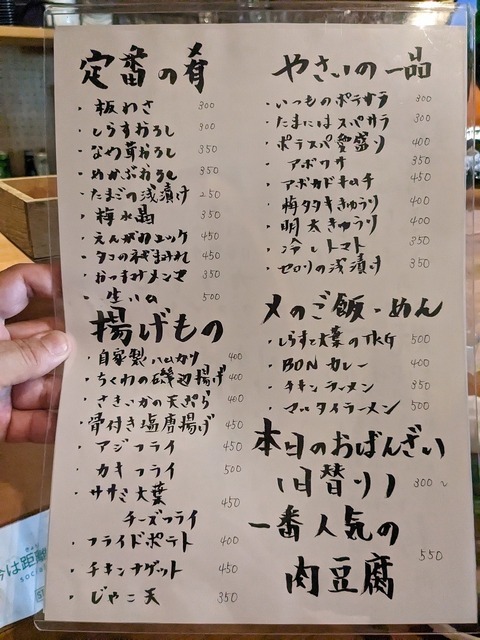 定番の肴
・板わさ 300
・しらすおろし 300
・なめ茸おろし 350
・めかぶおろし 350
・たまごの浅漬け 250
・梅水晶 350
・えんがわユッケ 450
・タコのねぎまみれ 450
・おつまみメンマ 350
・生ハム 500
揚げもの
・自家製ハムカツ 400
・ちくわの磯辺揚げ 400
・さきいかの天ぷら 400
・骨付き塩唐揚げ 450
・アジフライ 450
・カキフライ 500
・ササミ大葉
チーズフライ 450
・フライドポテト 400
・チキンナゲット 450
・じゃこ天 350
やさいの一品
・いつものポテサラ 300
・たまにはスパサラ 300
・ポテスパ愛盛り 400
・アボワサ 350
・アボカドキムチ 450
・梅タタキきゅうり 400
・明太きゅうり 400
・冷しトマト 350
・セロリの浅漬け 350
〆のご飯・めん
・しらすと大葉のTKG 500
・BONカレー 400
・チキンラーメン 350
・マルタイラーメン 500
本日のおばんざい
(日替り) 300~
一番人気の
肉豆腐 550
今は距離
SOCI